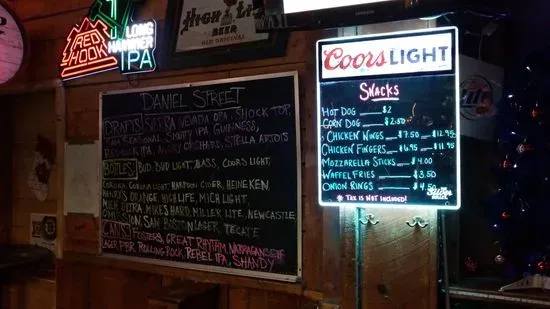 RED HOOK
LONG HAMMER IPA
HIGH LIFE
BEER
DANIEL STREET
DRAFTS: SIERRA NEVADA OPA, SHOCK TOP,
SAM SEASONAL, SHIPYARD IPA, GUINNESS,
ANGRY ORCHARD, STELLA ARTOIS
BOTTLES: BUD, BUD LIGHT, BASS, COORS LIGHT,
CORONA, CORONA LIGHT, HARPOON CIDER, HEINEKEN,
HENRY'S ORANGE, HIGH LIFE, MICH LIGHT,
MICH ULTRA, MIKES HARD, MILLER LITE, NEWCASTLE,
SAM BOSTON LAGER, TECATE
CANS: FOSTERS, GREAT RHYTHM, NARRAGANSETT
LAGER, PBR, ROLLING ROCK, REBEL IPA, SHANDY
Coors LIGHT
SNACKS
HOT DOG $2
CORN DOG $2.50
CHICKEN WINGS $7.50 $12.95
CHICKEN FINGERS $6.95 $12.95
MOZZARELLA STICKS $4.00
WAFFEL FRIES $3.50
ONION RINGS $4.50
* TAX IS NOT INCLUDED!